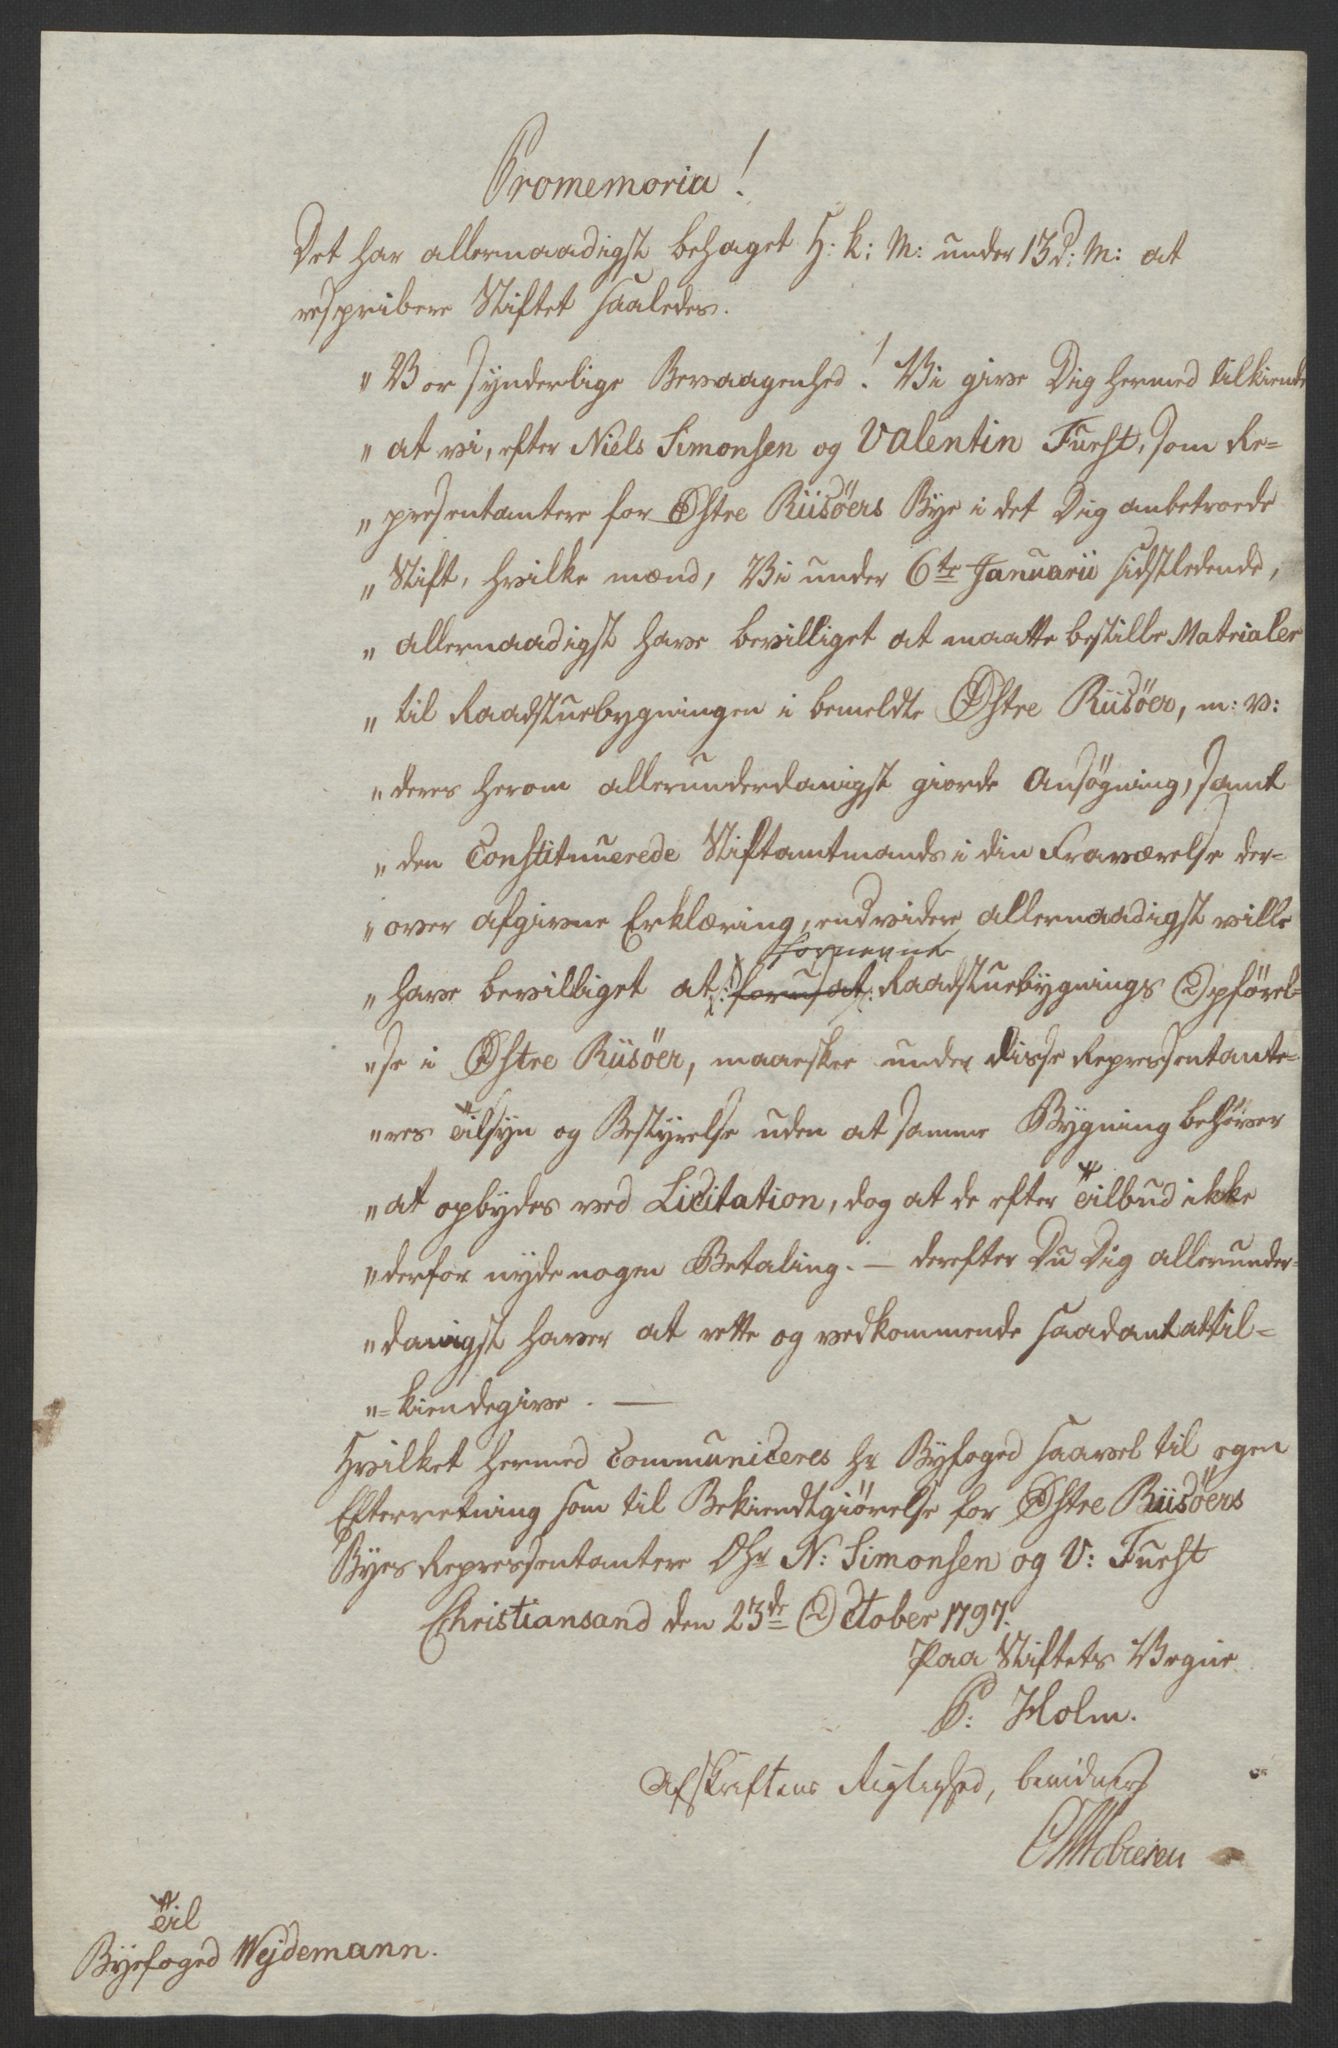 Promemoria!
Det har allernaadigst behaget H: k: M: under 13 d: M: at
rescribere Stiftet saaledes.
" Vor synderlige Bevaagenhed! Vi give Dig hermed tilkiende
" at vi, efter Niels Simonsen og Valentin Fuerst, som Re=
" presentantere for Østre Riisöers Bye i det Dig anbetroede
" Stift, hvilke mænd, Vi under 6te Januarii sidstledende,
" allernaadigst have bevilliget at maatte bestille Materialer
" til Raadstuebygningen i bemeldte Østre Riisöer, m: v:
" deres herom allerunderdanigst giorde Ansögning, samt
" den Constituuerede Stiftamtmands i din Fraværelse der=
" over afgivne Erklæring, endvidere allernaadigst ville
fornevnte
" have bevilliget at /: forusat :/ Raadstuebygnings Opförel=
" se i Østre Riisöer, maaeskee under disse Repressentante=
" res Tilsyn og Bestyrelse uden at samme Bygning behöver
" at opbydes ved Licitation, dog at de efter Tilbud ikke
" derfor nyde nogen Betaling. — derefter Du Dig allerunder=
" danigst haver at rette og vedkommende saadant at til=
" = kiendegive. —
Hvilket hermed Communiceres Hr Byfoged saavel til egen
Efterretning som til Bekiendtgiörelse for Østre Riisöers
Byes Repressentantere Dhr N: Simonsen og V: Fuerst
Christiansand den 23de October 1797.
Paa Stiftets Vegne
P: Holm.
Afskriftens Rigtighed, bevidner
Til
Byefoged Wejdemann.